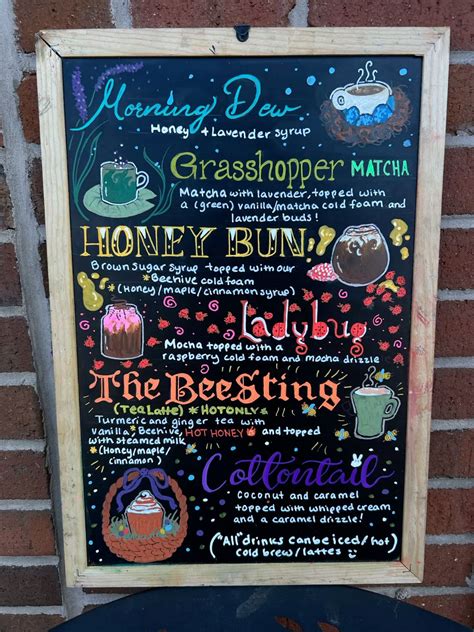 Morning Dew
Honey + Lavender syrup
Grasshopper MATCHA
Matcha with lavender, topped with
a (green) vanilla/matcha cold foam and
lavender buds!
HONEY BUN
Brown Sugar syrup topped with our
*Beehive cold foam
*(Honey/maple/cinnamon syrup)
Ladybug
Mocha topped with a
raspberry cold foam and mocha drizzle
The BeeSting
(Tea Latte) *HOT ONLY*
Turmeric and ginger tea with
vanilla, *Beehive, HOT HONEY and topped
with steamed milk
*(Honey/maple/
cinnamon)
Cottontail
Coconut and caramel
topped with whipped cream
and a caramel drizzle!
("All" drinks can be iced/hot/
cold brew/lattes